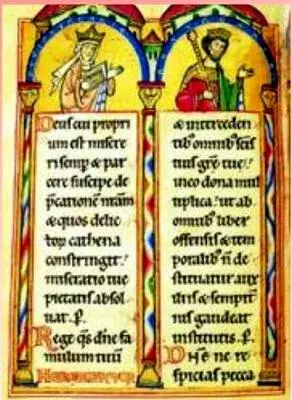 Deus cui propri
um est misere
ri semp & par
cere suscipe de
p̄cationē nr̄am
& quos delic
torͥ cathena
constringit
miseratio tue
pietatis absol
uat. P.
Rege qs̄ dn̄e fa
mulum tuū
& interceden
tib' omnib' scīs
tuis grē tue
in eo dona mul
tiplica. ut ab
omnib' liber
offensis & tem
poralib' n̄ de
stituatur auxi
liis & sempit̄
nis gaudeat
institutis. P.
Dn̄e ne re
spicias pecca